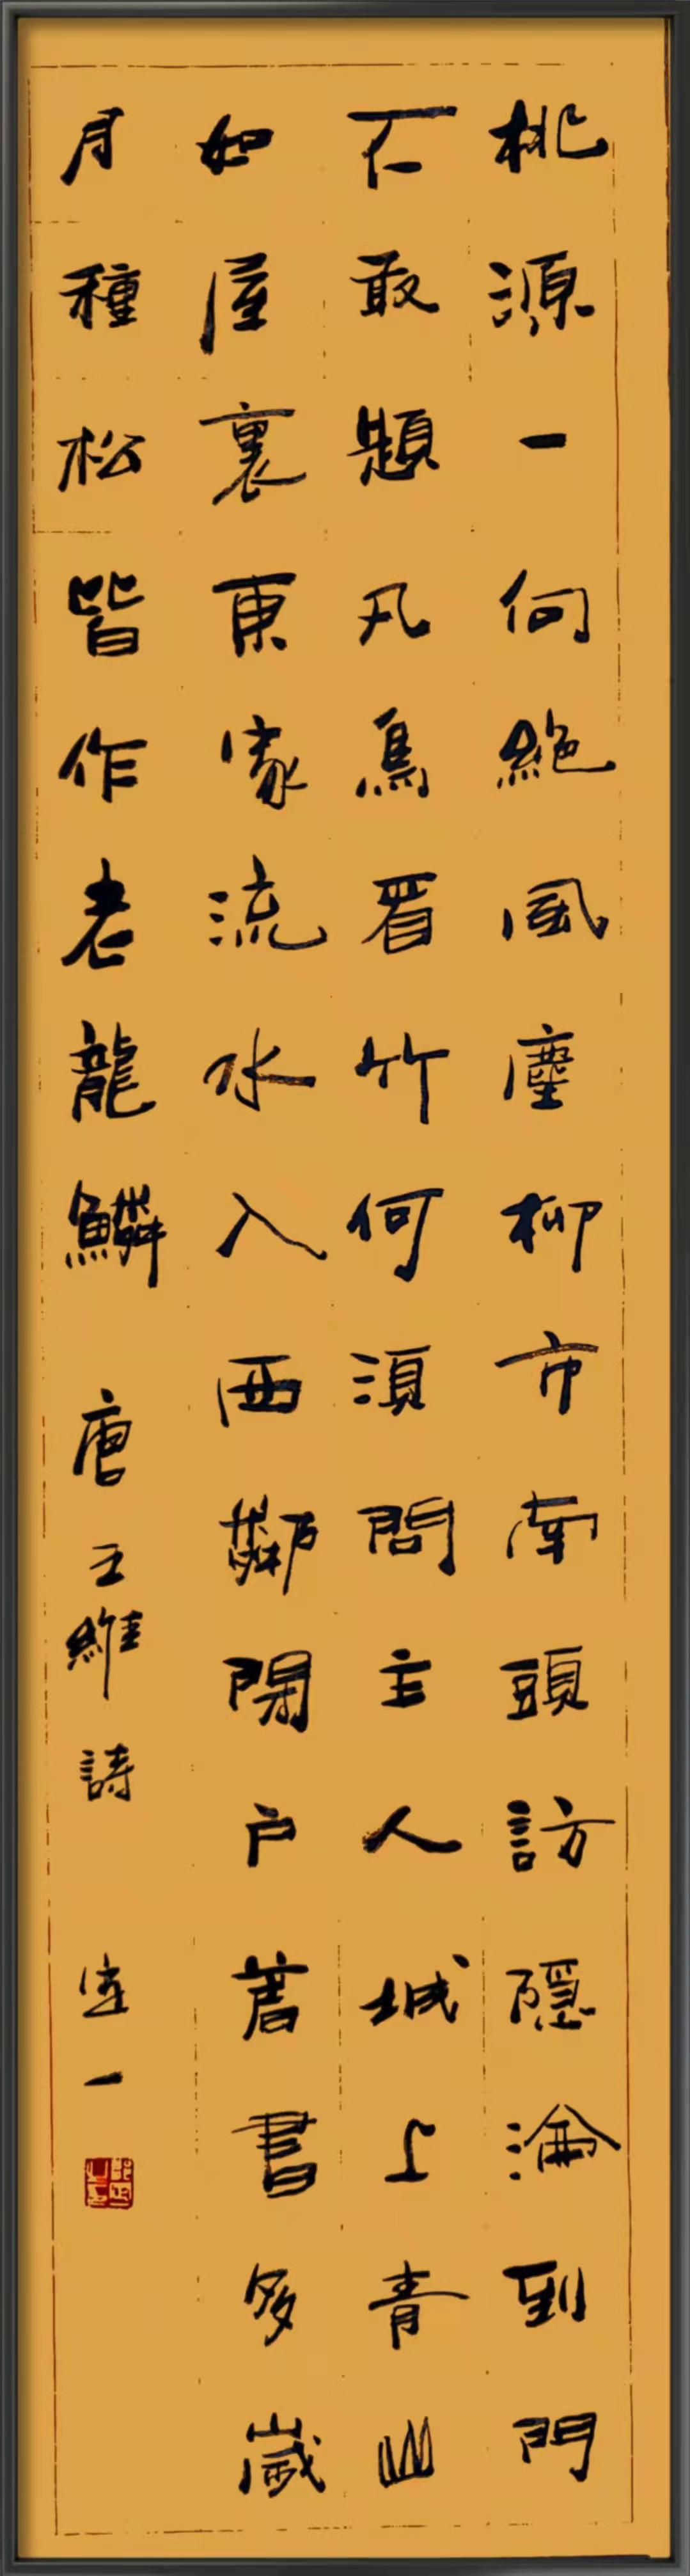 桃源一向絶風塵柳市南頭訪隱淪到門
不敢題凡鳥看竹何須問主人城上青山
如屋裏東家流水入西鄰閉户著書多歲
月種松皆作老龍鱗 唐王維詩 一